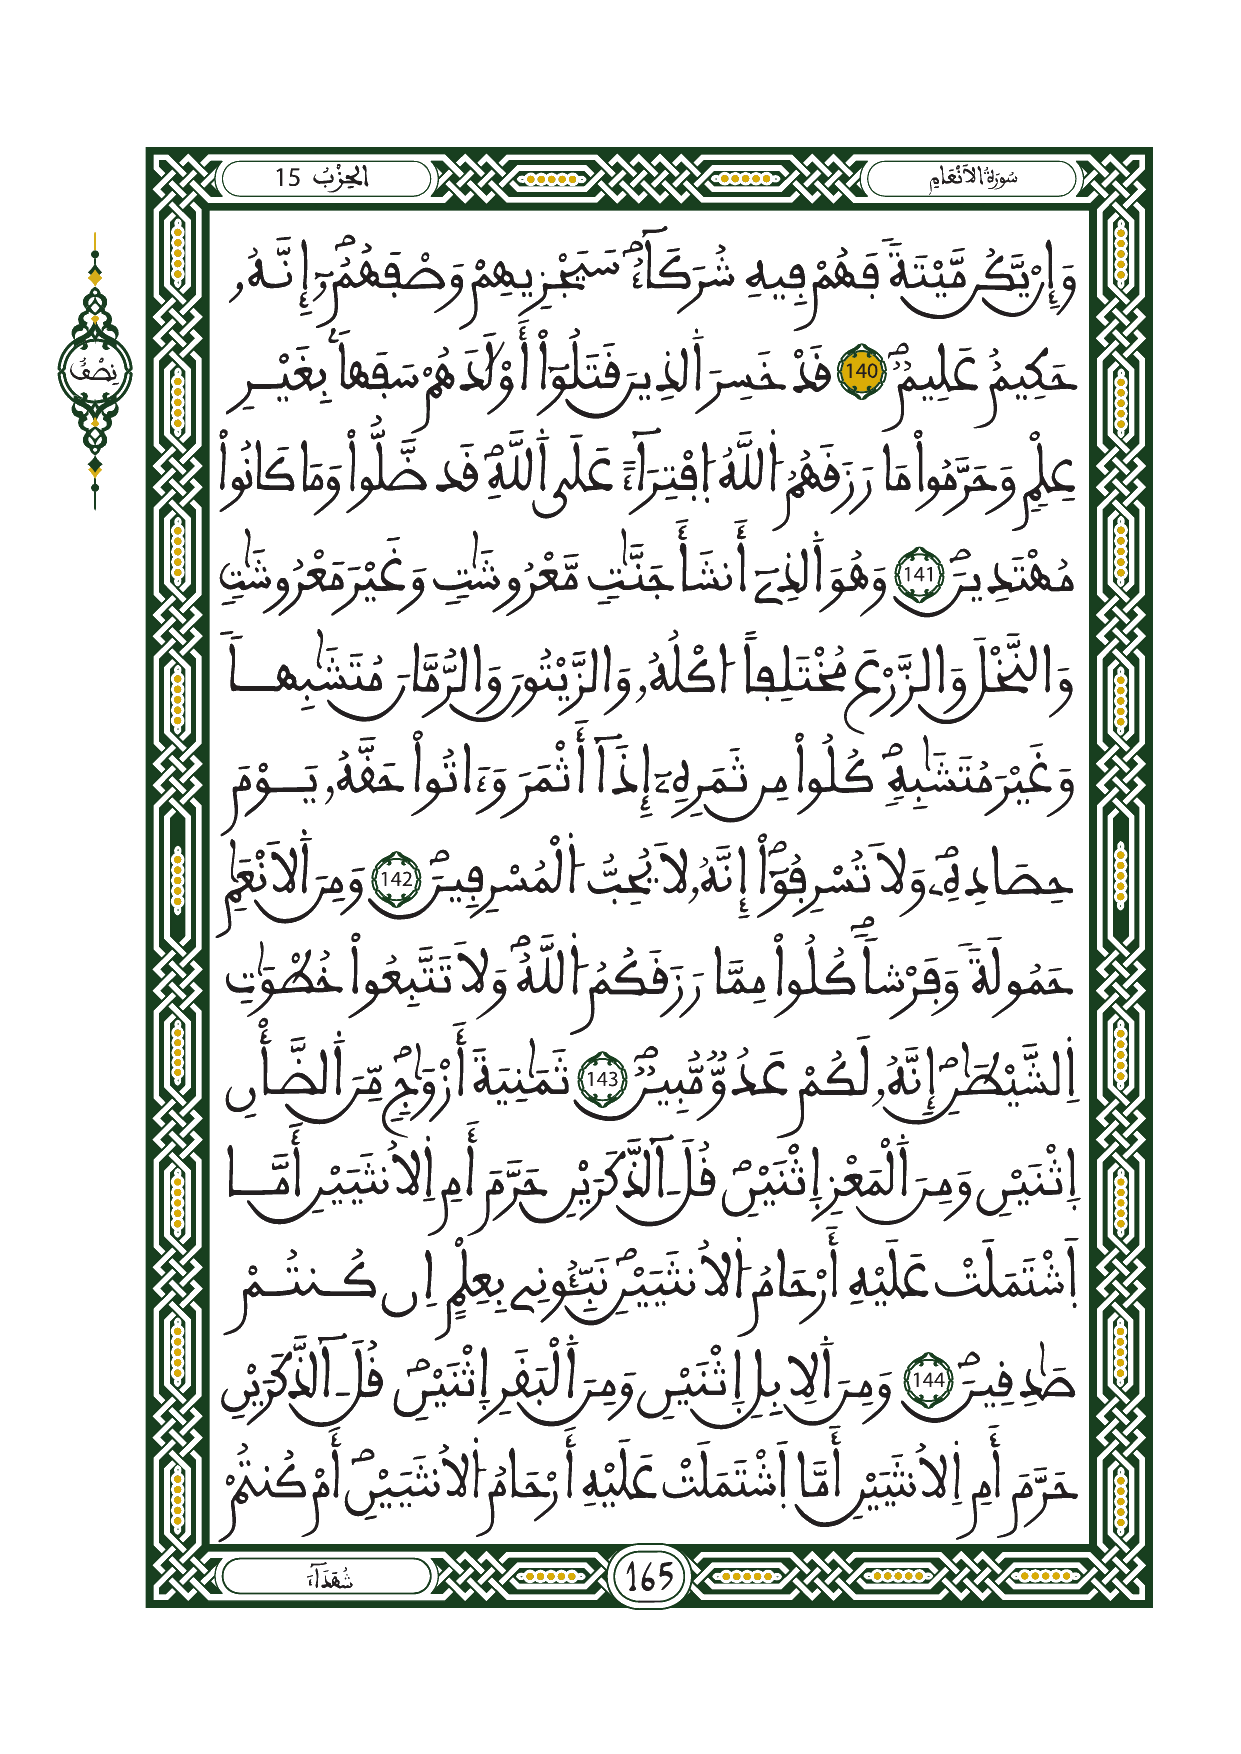 سُورَةُ الَانْعَامِ
الحِزْبُ 15
وَإِنْ يَّكُن مَّيْتَةً فَهُمْ فِيهِ شُرَكَآءُ سَيَجْزِيهِمْ وَصْفَهُمُۥٓ إِنَّهُۥ
حَكِيمٌ عَلِيمٌ 140 قَدْ خَسِرَ اَ۬لذِينَ قَتَلُوٓاْ أَوْلَٰدَهُمْ سَفَهاَۢ بِغَيْرِ
نِصْفُ
عِلْمٍ وَحَرَّمُواْ مَا رَزَقَهُمُ اُ۬للَّهُ اُ۪فْتِرَآءً عَلَى اَ۬للَّهِ قَد ضَّلُّواْ وَمَا كَانُواْ
مُهْتَدِينَ 141 وَهُوَ اَ۬لذِےٓ أَنشَأَ جَنَّٰتٖ مَّعْرُوشَٰتٖ وَغَيْرَ مَعْرُوشَٰتٖ
وَالنَّخْلَ وَالزَّرْعَ مُخْتَلِفاً ا۟كْلُهُۥ وَالزَّيْتُونَ وَالرُّمَّانَ مُتَشَٰبِهاٗ
وَغَيْرَ مُتَشَٰبِهٖ كُلُواْ مِن ثَمَرِهِۦٓ إِذَآ أَثْمَرَ وَءَاتُواْ حَقَّهُۥ يَوْمَ
حِصَادِهِۦ وَلَا تُسْرِفُوٓاْ إِنَّهُۥ لَا يُحِبُّ اُ۬لْمُسْرِفِينَ 142 وَمِنَ اَ۬لَانْعَٰمِ
حَمُولَةٗ وَفَرْشاٗ كُلُواْ مِمَّا رَزَقَكُمُ اُ۬للَّهُ وَلَا تَتَّبِعُواْ خُطْوَٰتِ
اِ۬لشَّيْطَٰنِ إِنَّهُۥ لَكُمْ عَدُوّٞ مُّبِينٞ 143 ثَمَٰنِيَةَ أَزْوَٰجٖ مِّنَ اَ۬لضَّأْنِ
اِ۪ثْنَيْنِ وَمِنَ اَ۬لْمَعْزِ اِ۪ثْنَيْنِ قُلَ ـ آلذَّكَرَيْنِ حَرَّمَ أَمِ اِ۬لُانثَيَيْنِ أَمَّا
اَ۪شْتَمَلَتْ عَلَيْهِ أَرْحَامُ اُ۬لُانثَيَيْنِ نَبِّـُٔونِے بِعِلْمٍ اِن كُنتُمْ
صَٰدِقِينَ 144 وَمِنَ اَ۬لِابِلِ اِ۪ثْنَيْنِ وَمِنَ اَ۬لْبَقَرِ اِ۪ثْنَيْنِ قُلَ ـ آلذَّكَرَيْنِ
حَرَّمَ أَمِ اِ۬لُانثَيَيْنِ أَمَّا اَ۪شْتَمَلَتْ عَلَيْهِ أَرْحَامُ اُ۬لُانثَيَيْنِ أَمْ كُنتُمْ
165
شُهَدَآءَ